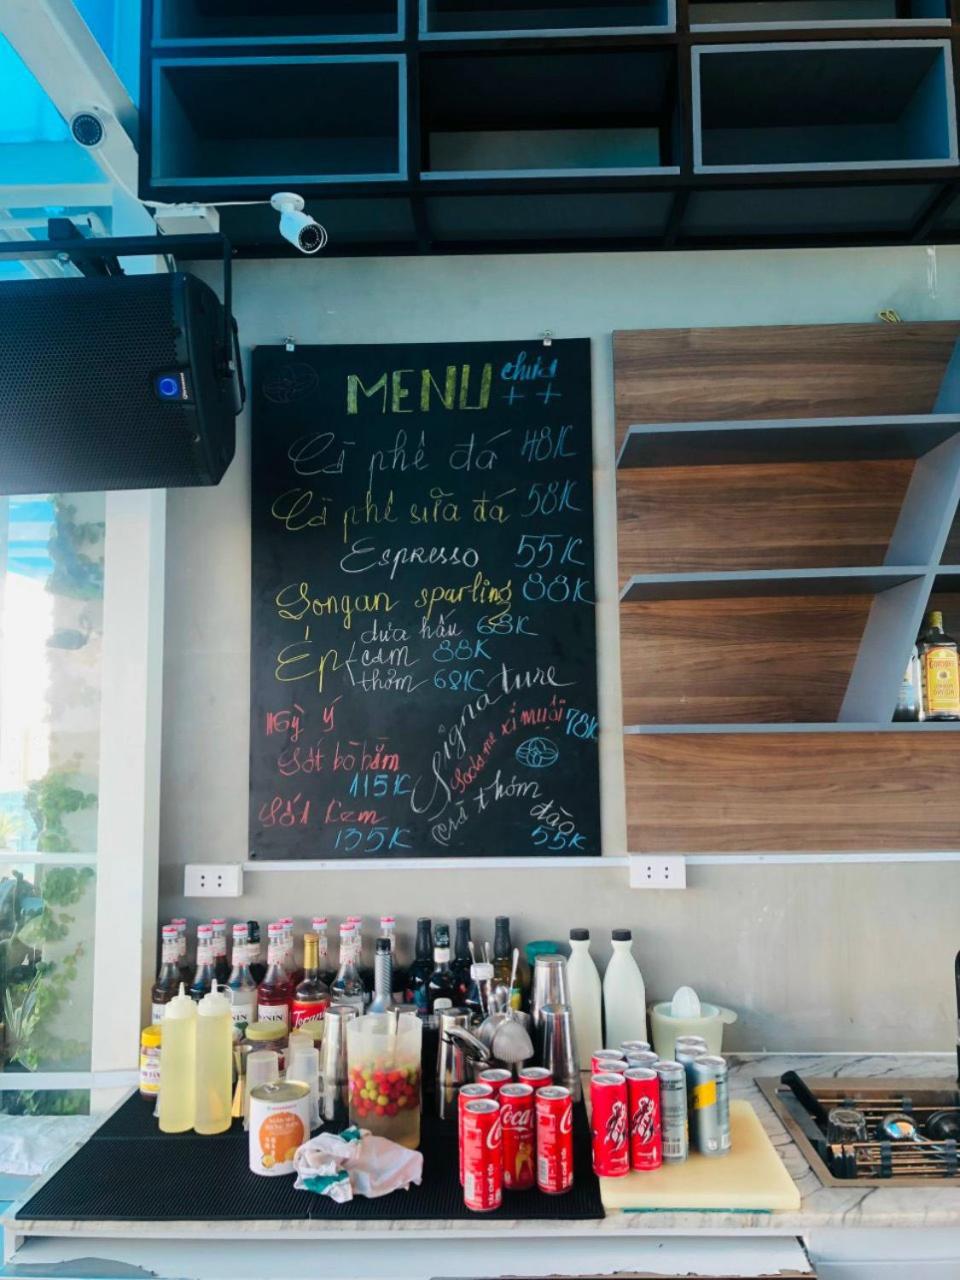 MENU chưa
++
Cà phê đá 48K
Cà phê sữa đá 58K
Espresso 55K
Longan sparling 88K
Ép
dưa hấu 68K
cam 88K
thơm 68K
Mỳ ý
Sốt bò bằm
115K
Sốt kem
135K
Signature
Soda me xí muội 78K
Trà thơm
đào
55K
Torani
Coca
GORDON'S